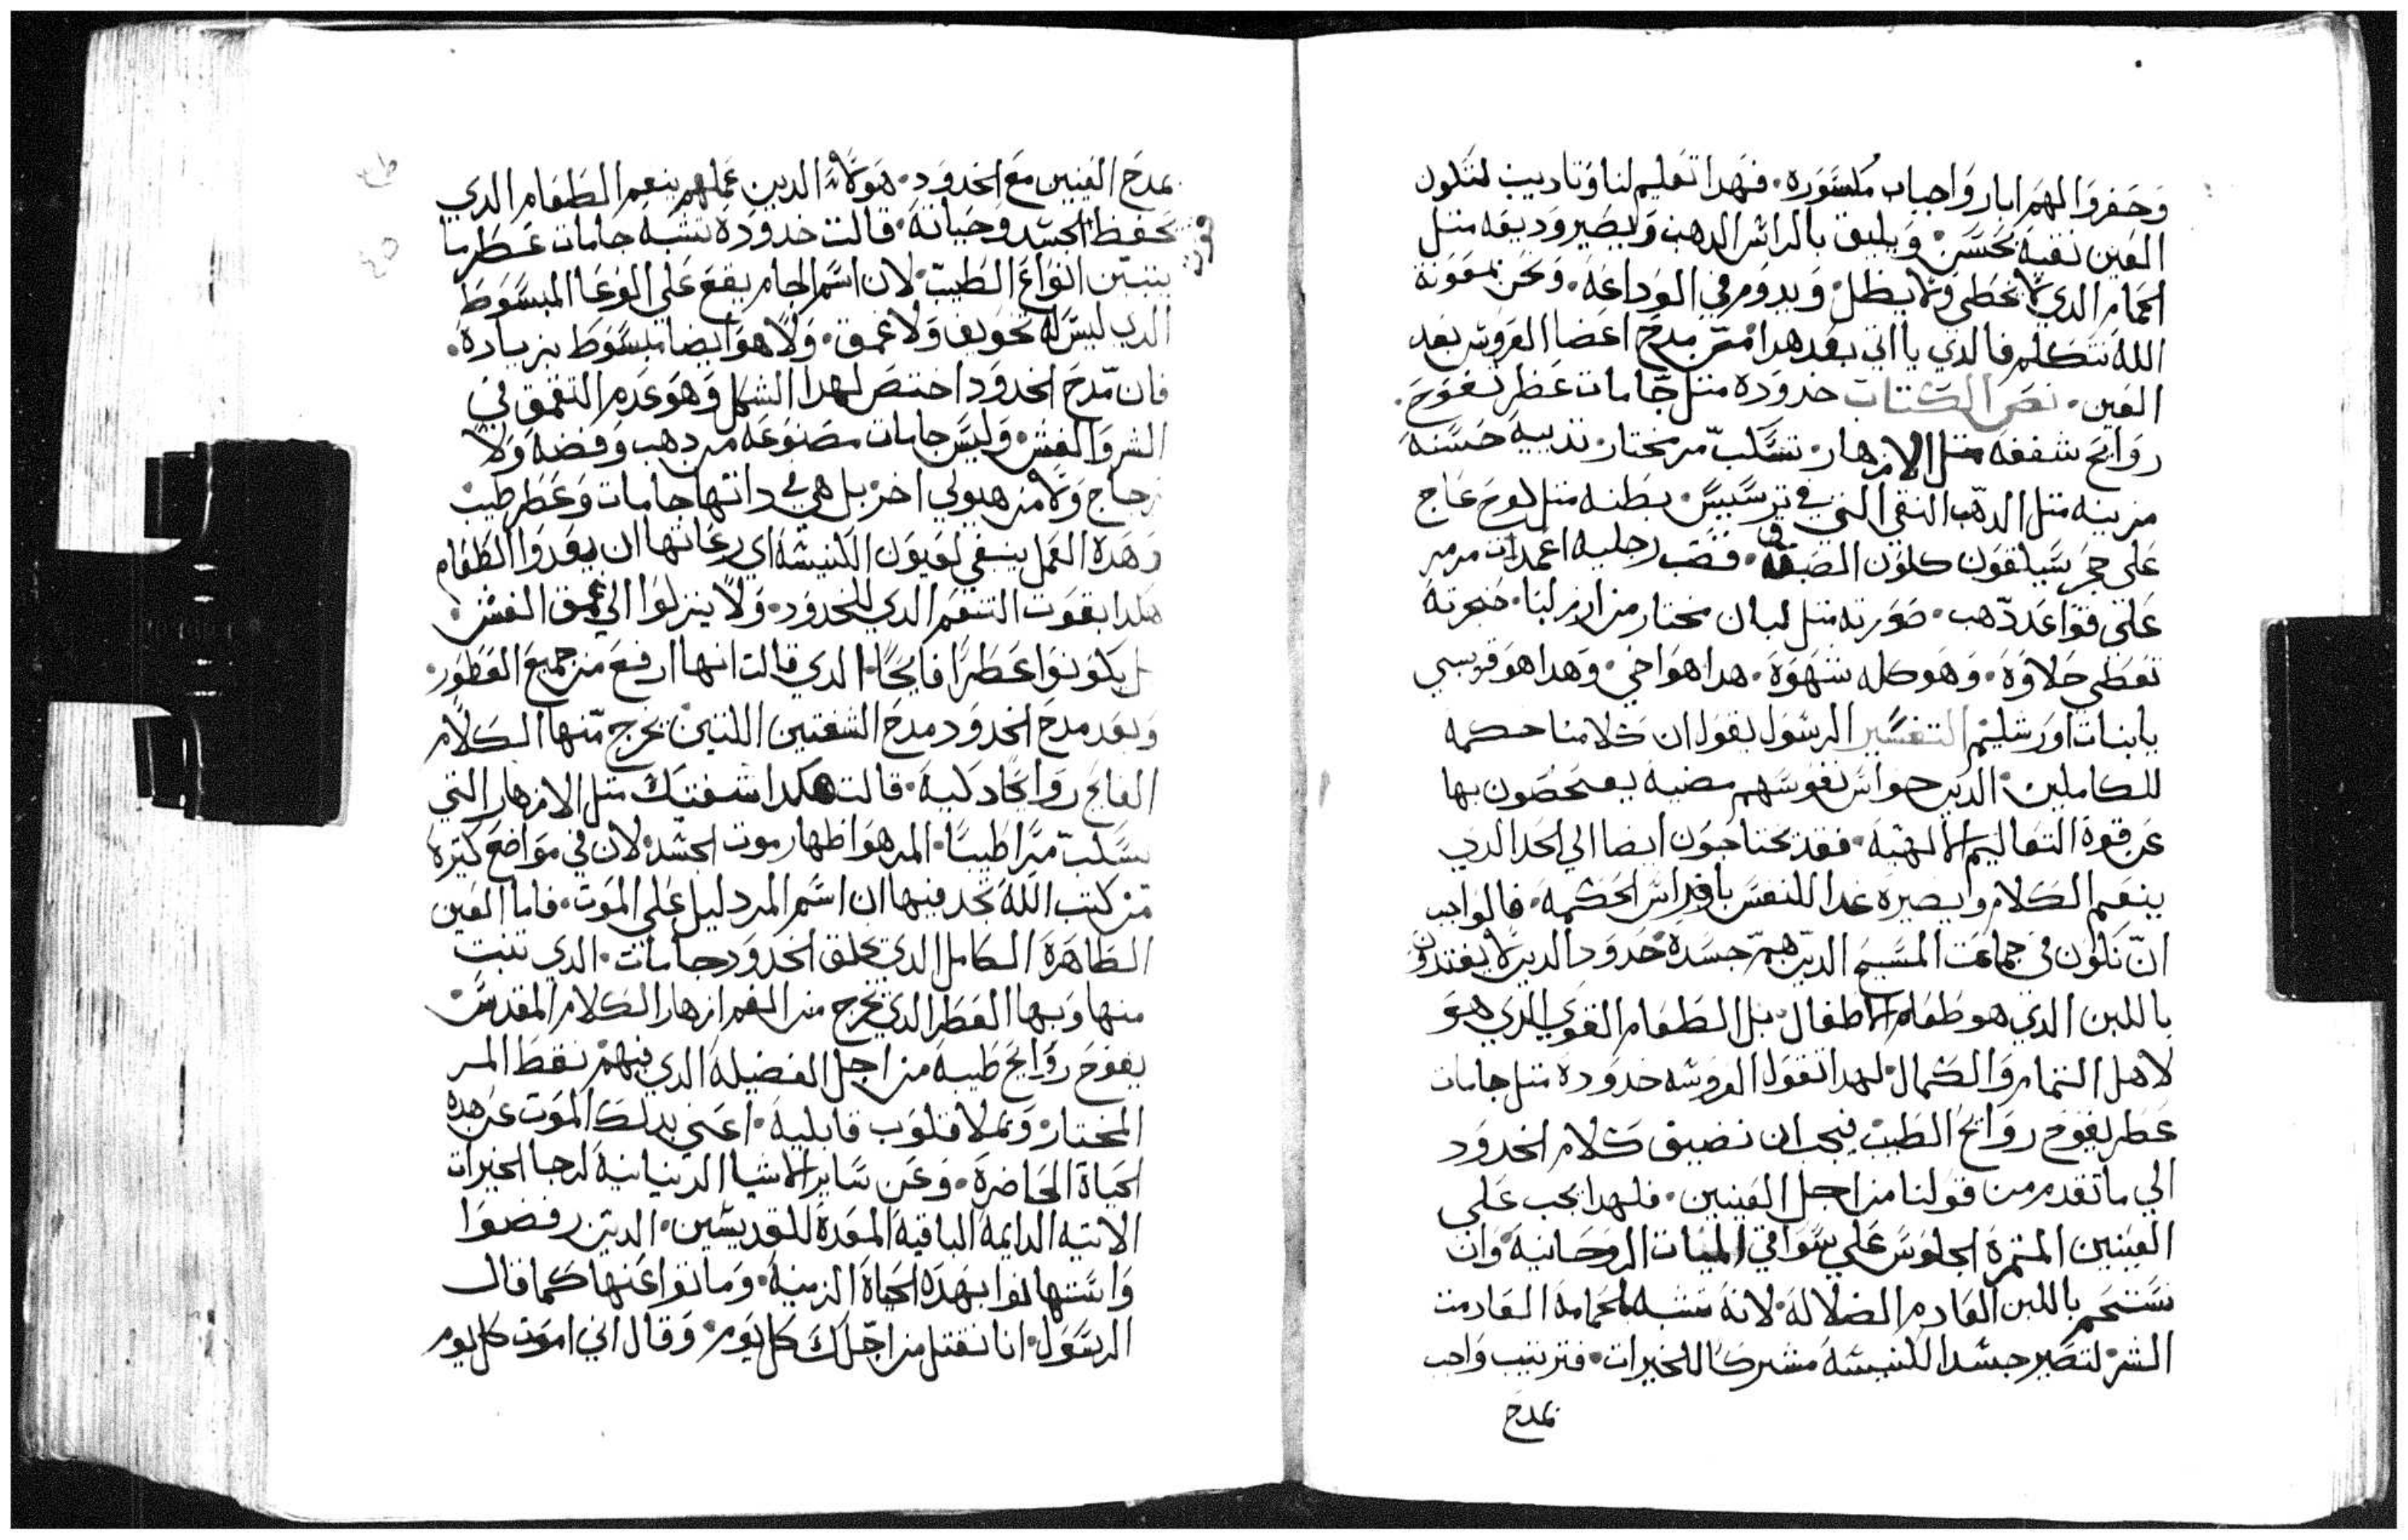 وحفروا لهم ابار واجباب مكسوره. فهدا تعليم لنا وتاديب لتكون
العين نقيه بحسن ويليق بالراس الدهب وتصير وديعه متل
الحمام الدي لا تخطي ولا يظل ويدوم في الوداعه. ونحن بمعونة
الله نتكلم فالدي ياتي بعد هدا من مدح اعضا العروس بعد
العين. نص الكتاب خدوده متل جامات عطر تفوح.
روايح شففه متل الازهار. تسكب مر مختار. تدييه حسنه
مزينه متل الدهب النقي التي في ترسيس. بطنه متل لوح عاج
علي حجر سيلقون كلون الصبغه. قصب رجليه اعمدات مرمر
علي قواعد دهب. صورته متل لبان مختار من ارز لبنا. حنجرته
تعطي حلاوه. وهو كله شهوة. هدا هو اخي. وهدا هو قريبي
يابنات اورشليم التفسير الرسول يقول ان كلامنا حكمه
للكاملين الدين حواس نفوسهم مضيه يفحصون بها
عن قوة التعاليم الالهيه. فقد تحتاجون ايضا الي الخد الدي
ينعم الكلام ويصيره غدا للنفس باقداس الحكمه. فالواجب
ان نكون في جماعت المسيح الدين هم جسده خدودا لدين لا يغتدون
باللبن الدي هو طعام الاطفال بل الطعام القوي الدي هو
لاهل التمام والكمال لهدا تقول العروسه خدوده متل جامات
عطر يفوح روايح الطيب فيجب ان نضيف كلام الخدود
الي ما تقدم من قولنا من اجل العينين. فلهدا يجب علي
العينين المتمرة الجلوس علي سواقي المياه الروحانيه وان
تستحم باللبن العادم الضلاله لانه تشبه الحمامه العادمت
الشر لتصير جسد الكنيسه مشركا للخيرات. فترتيب واجب
نمدح
نمدح العينين مع الخدود. هولاء الدين عملهم ينعم الطعام الدي
يحفظ الجسد وحياته. قالت خدوده تشبه جامات عطر ما
ينبتن انواع الطيب لان اسم الجام يقع علي الوعا المبسوط
الدي ليس له تجويف ولا عمق. ولا هو ايضا مبسوط بزيادة.
فان مدح الخدود اختص لهدا الشكل وهو عدم التعمق في
الشر والغش وليس جامات مصنوعه من دهب وفضه ولا
زجاج ولا من هيولي اخر بل هي في داتها جامات وعطر طيب
وهده العمل ينبغي لعيون الكنيسه اي رعاتها ان يعدوا الطعام
هكدا بقوت التنعم الدي للخدود. ولا ينزلوا الي عمق الغش
بل يكونوا عطرا فايحا. الدي قالت انها ارفع من جميع العطور.
وبعد مدح الخدود مدح الشفتين اللتين تخرج منها الكلام
الفايح روايحا دكيه. قالت هكدا شفتيك متل الازهار التي
تسكب مرا طيبا. المر هو اظهار موت الجسد لان في مواضع كتيرة
من كتب الله نجد فيها ان اسم المر دليل علي الموت. فاما العين
الطاهرة الكامل الدي تخلق الخدود جامات. الدي تنبت
منها وبها العطر الدي يخرج من الفم ازهار الكلام المقدس
يفوح روايح طيبه من اجل الفضيله الدي فيهم نقط المر
المختار وتملا قلوب قابليه. اعني بدلك الموت عن هده
الحياة الحاضرة. وعن ساير الاشيا الدنيانيه لرجا الخيرات
الاتيه الدايمه الباقيه المعدة للقديسين. الدين رفضوا
واستهانوا بهده الحياة الزمنيه. وماتوا عنها كما قال
الرسول. انا نقتل من اجلك كل يوم. وقال اني اموت كل يوم